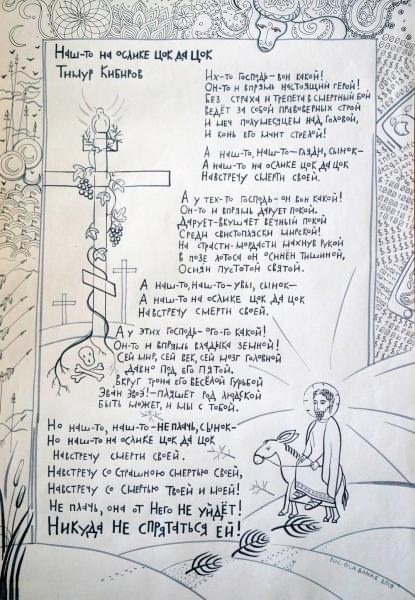 Наш-то на ослике цок да цок
Тимур Кибиров
Их-то Господь – вон какой!
Он-то и впрямь настоящий герой!
Без страха и трепета в смертный бой
ведёт за собой правоверных строй
и меч полумесяцем над головой,
и конь его мчит стрелой!
А наш-то, наш-то – гляди, сынок –
А наш-то на ослике цок да цок
Навстречу смерти своей.
А у тех-то Господь – он вон какой!
Он-то и впрямь дарует покой.
Дарует-вкушает вечный покой
Среди свистопляски мирской!
На страсти-мордасти махнув рукой
в позе лотоса он осиянен тишиной,
Осиян пустотой святой.
А наш-то, наш-то – увы, сынок –
А наш-то на ослике цок да цок
Навстречу смерти своей.
А у этих Господь – ого-го какой!
Он-то и впрямь владыка земной!
Сей мир, сей век, сей мозг головной
давно под его пятой.
Вкруг трона его весёлой гурьбой
Эван эвоэ! – пляшет род людской
Быть может, и мы с тобой.
Но наш-то, наш-то – не плачь, сынок –
Но наш-то на ослике цок да цок
Навстречу смерти своей.
Навстречу со страшною смертью своей,
Навстречу со смертью твоей и моей!
Не плачь, она от Него не уйдёт!
Никуда не спрятаться ей!